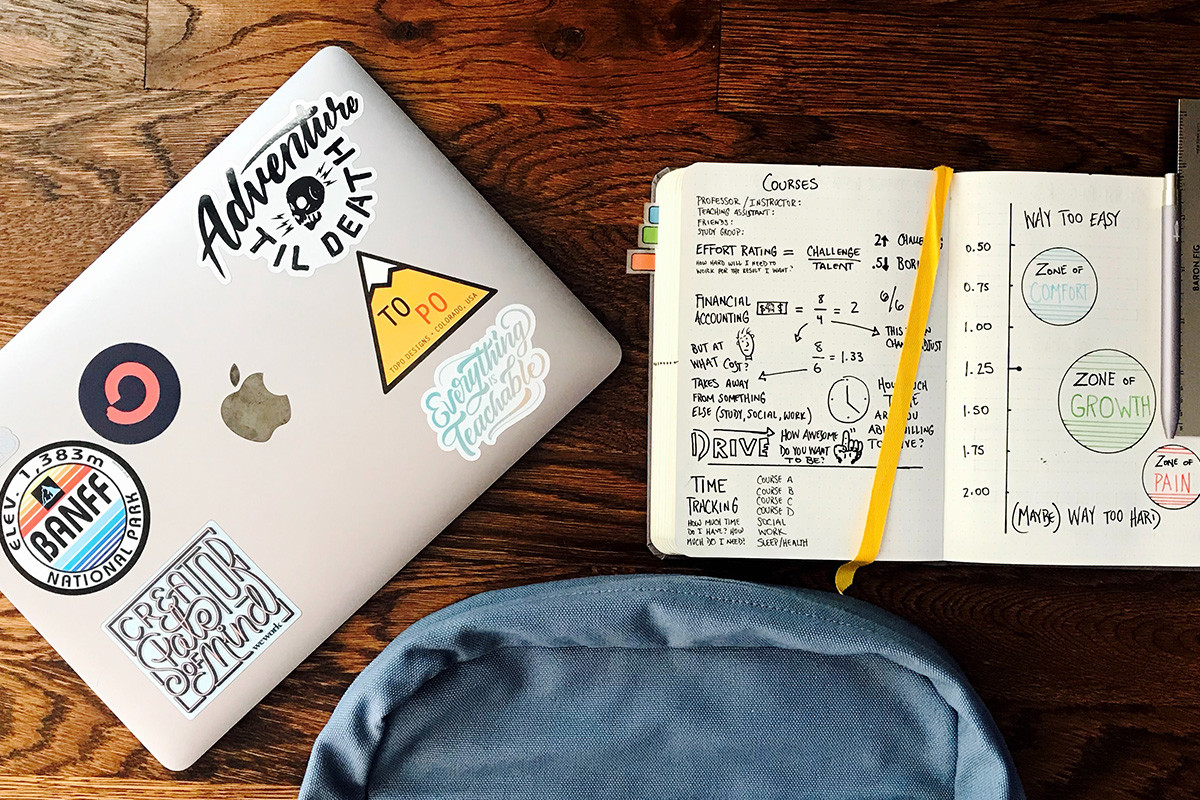 Adventure
TIL DEATH
TO
PO
TOPO DESIGNS • COLORADO, USA
Everything
IS
Teachable
ELEV. 1,383m
BANFF
NATIONAL PARK
CREATOR
State
OF Mind
wework
COURSES
PROFESSOR / INSTRUCTOR:
TEACHING ASSISTANT:
FRIENDS:
STUDY GROUP:
EFFORT RATING = CHALLENGE
TALENT
HOW HARD WILL I NEED TO
WORK FOR THE RESULT I WANT?
2
.5
FINANCIAL
ACCOUNTING
$$$ = 8/4 = 2
6/6
THIS
8/6 = 1.33
BUT AT
WHAT COST?
TAKES AWAY
FROM SOMETHING
ELSE (STUDY, SOCIAL, WORK)
DRIVE
HOW AWESOME
DO YOU WANT
TO BE?
TIME
TRACKING
HOW MUCH TIME
DO I HAVE? HOW
MUCH DO I NEED?
COURSE A
COURSE B
COURSE C
COURSE D
SOCIAL
WORK
SLEEP/HEALTH
WAY TOO EASY
0.50
0.75
1.00
1.25
1.50
1.75
2.00
ZONE OF
COMFORT
ZONE OF
GROWTH
ZONE OF
PAIN
(MAYBE) WAY TOO HARD
BARON FIG